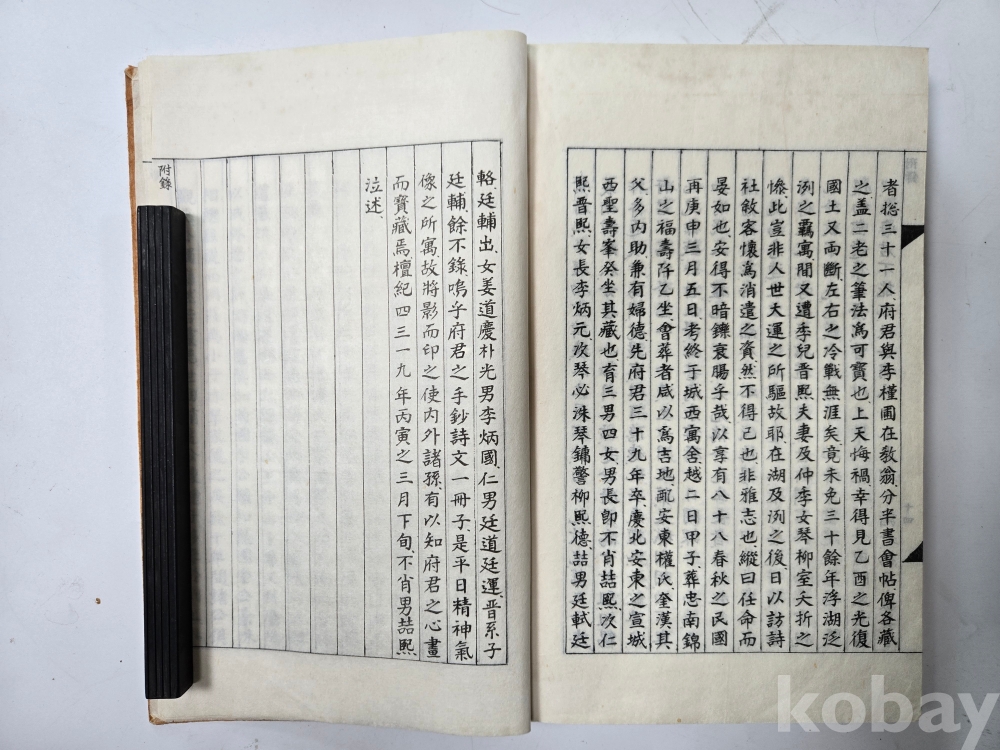 者捴三十一人府君與李槿圃在敎翁分半書會帖俾各藏
之盖二老之筆法爲可寶也上天悔禍幸得見乙酉之光復
國土又兩斷左右之冷戰無涯矣竟未免三十餘年浮湖泛
洌之覊寓間又遭季兒晋熙夫妻及仲季女琴柳室夭折之
慘此豈非人世大運之所驅故耶在湖及洌之後日以訪詩
社敘客懷爲消遣之資然不得已也非雅志也縱曰任命而
晏如也安得不暗鑠衰腸乎哉以享有八十八春秋之民國
再庚申三月五日考終于城西寓舍越二日甲子葬忠南錦
山之福壽阡乙坐會葬者咸以爲吉地配安東權氏奎漢其
父多內助兼有婦德先府君三十九年卒慶北安東之宣城
西聖壽峯癸坐其藏也育三男四女男長卽不肖喆熙次仁
熙晋熙女長李炳元次琴必洙琴鏞警柳熙德喆男廷軾廷
輅廷輔出女姜道慶朴光男李炳國仁男廷道廷運晋系子
廷輔餘不錄嗚乎府君之手鈔詩文一冊子是平日精神氣
像之所寓故將影而印之使內外諸孫有以知府君之心畫
而寶藏焉檀紀四三一九年丙寅之三月下旬不肖男喆熙
泣述
附錄
kobay